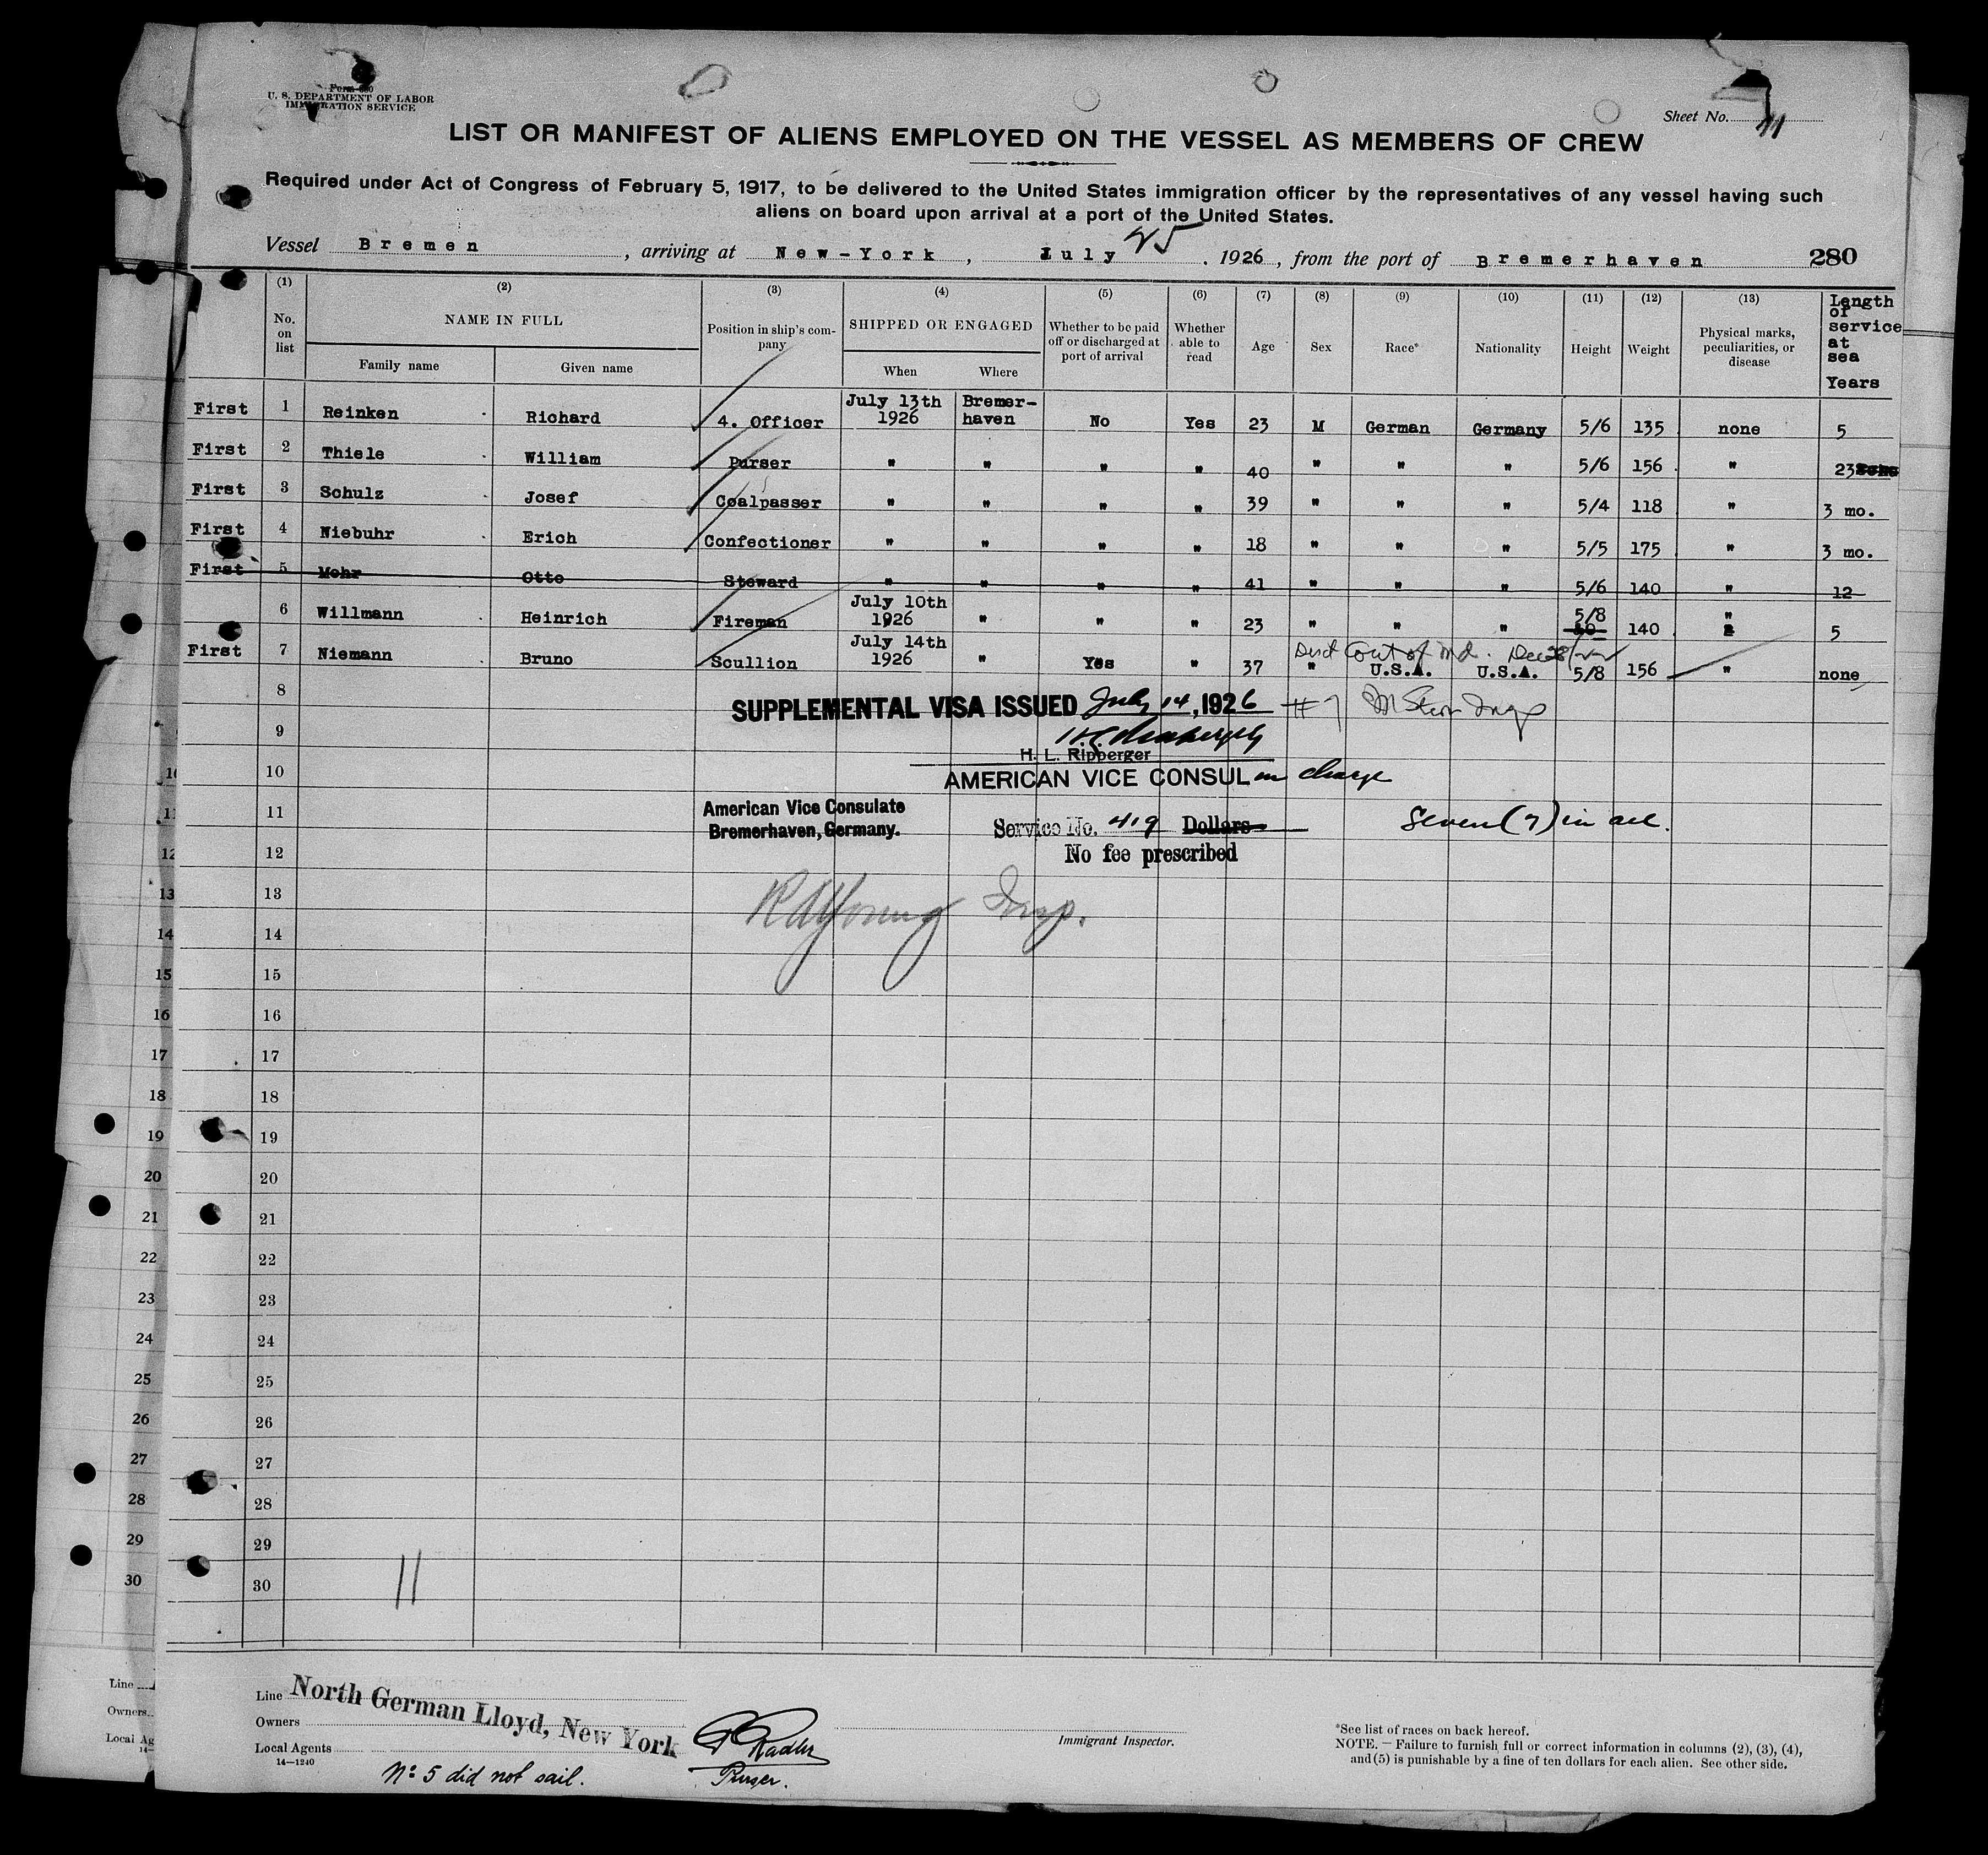 Form 680
U. S. DEPARTMENT OF LABOR
IMMIGRATION SERVICE
Sheet No. 11
LIST OR MANIFEST OF ALIENS EMPLOYED ON THE VESSEL AS MEMBERS OF CREW
Required under Act of Congress of February 5, 1917, to be delivered to the United States immigration officer by the representatives of any vessel having such
aliens on board upon arrival at a port of the United States.
Vessel Bremen, arriving at New-York, July 25, 1926, from the port of Bremerhaven 280
(1) (2) (3) (4) (5) (6) (7) (8) (9) (10) (11) (12) (13)
No. on list NAME IN FULL Family name Given name Position in ship's company SHIPPED OR ENGAGED When Where Whether to be paid off or discharged at port of arrival Whether able to read Age Sex Race* Nationality Height Weight Physical marks, peculiarities, or disease Length of service at sea Years
First 1 Reinken Richard 4. Officer July 13th 1926 Bremer-haven No Yes 23 M German Germany 5/6 135 none 5
First 2 Thiele William Purser " " " " 40 " " " 5/6 156 " 23
First 3 Schulz Josef Coalpasser " " " " 39 " " " 5/4 118 " 3 mo.
First 4 Niebuhr Erich Confectioner " " " " 18 " " " 5/5 175 " 3 mo.
First 5 Mohr Otto Steward " " " " 41 " " " 5/6 140 " 12
6 Willmann Heinrich Fireman July 10th 1926 " " " 23 " " " 5/8 140 " 5
Dist Court of Md. Dec 28/22
First 7 Niemann Bruno Scullion July 14th 1926 " Yes " 37 " U.S.A. U.S.A. 5/8 156 " none
8
SUPPLEMENTAL VISA ISSUED July 14, 1926 #7 M Stern Insp
9
H. L. Ripperger
10
AMERICAN VICE CONSUL in charge
11
American Vice Consulate
Bremerhaven, Germany.
Service No. 419 Dollars
Seven (7) in all.
12
No fee prescribed
13
R A Young Insp.
14
15
16
17
18
19
20
21
22
23
24
25
26
27
28
29
30
11
10
11
12
13
14
15
16
17
18
19
20
21
22
23
24
25
26
27
28
29
30
Line
Owners
Local Ag
14—
Line North German Lloyd, New York
Owners
Local Agents
14—1240
No 5 did not sail.
Purser.
Immigrant Inspector.
*See list of races on back hereof.
NOTE.—Failure to furnish full or correct information in columns (2), (3), (4),
and (5) is punishable by a fine of ten dollars for each alien. See other side.